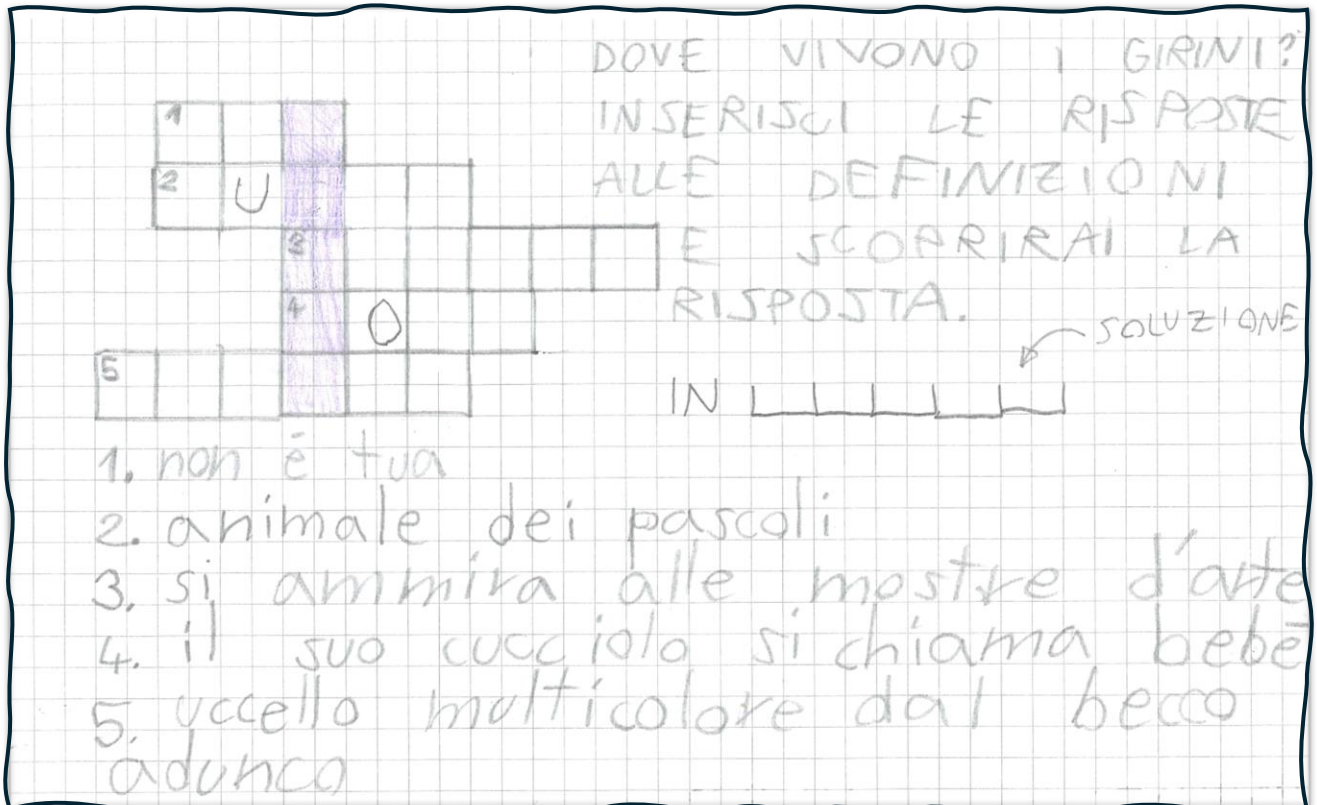 DOVE VIVONO I GIRINI?
INSERISCI LE RISPOSTE
ALLE DEFINIZIONI
E SCOPRIRAI LA
RISPOSTA.
SOLUZIONE
IN
1
2 U
3
4 O
5
1. non è tua
2. animale dei pascoli
3. si ammira alle mostre d'arte
4. il suo cucciolo si chiama bebè
5. uccello multicolore dal becco
adunco